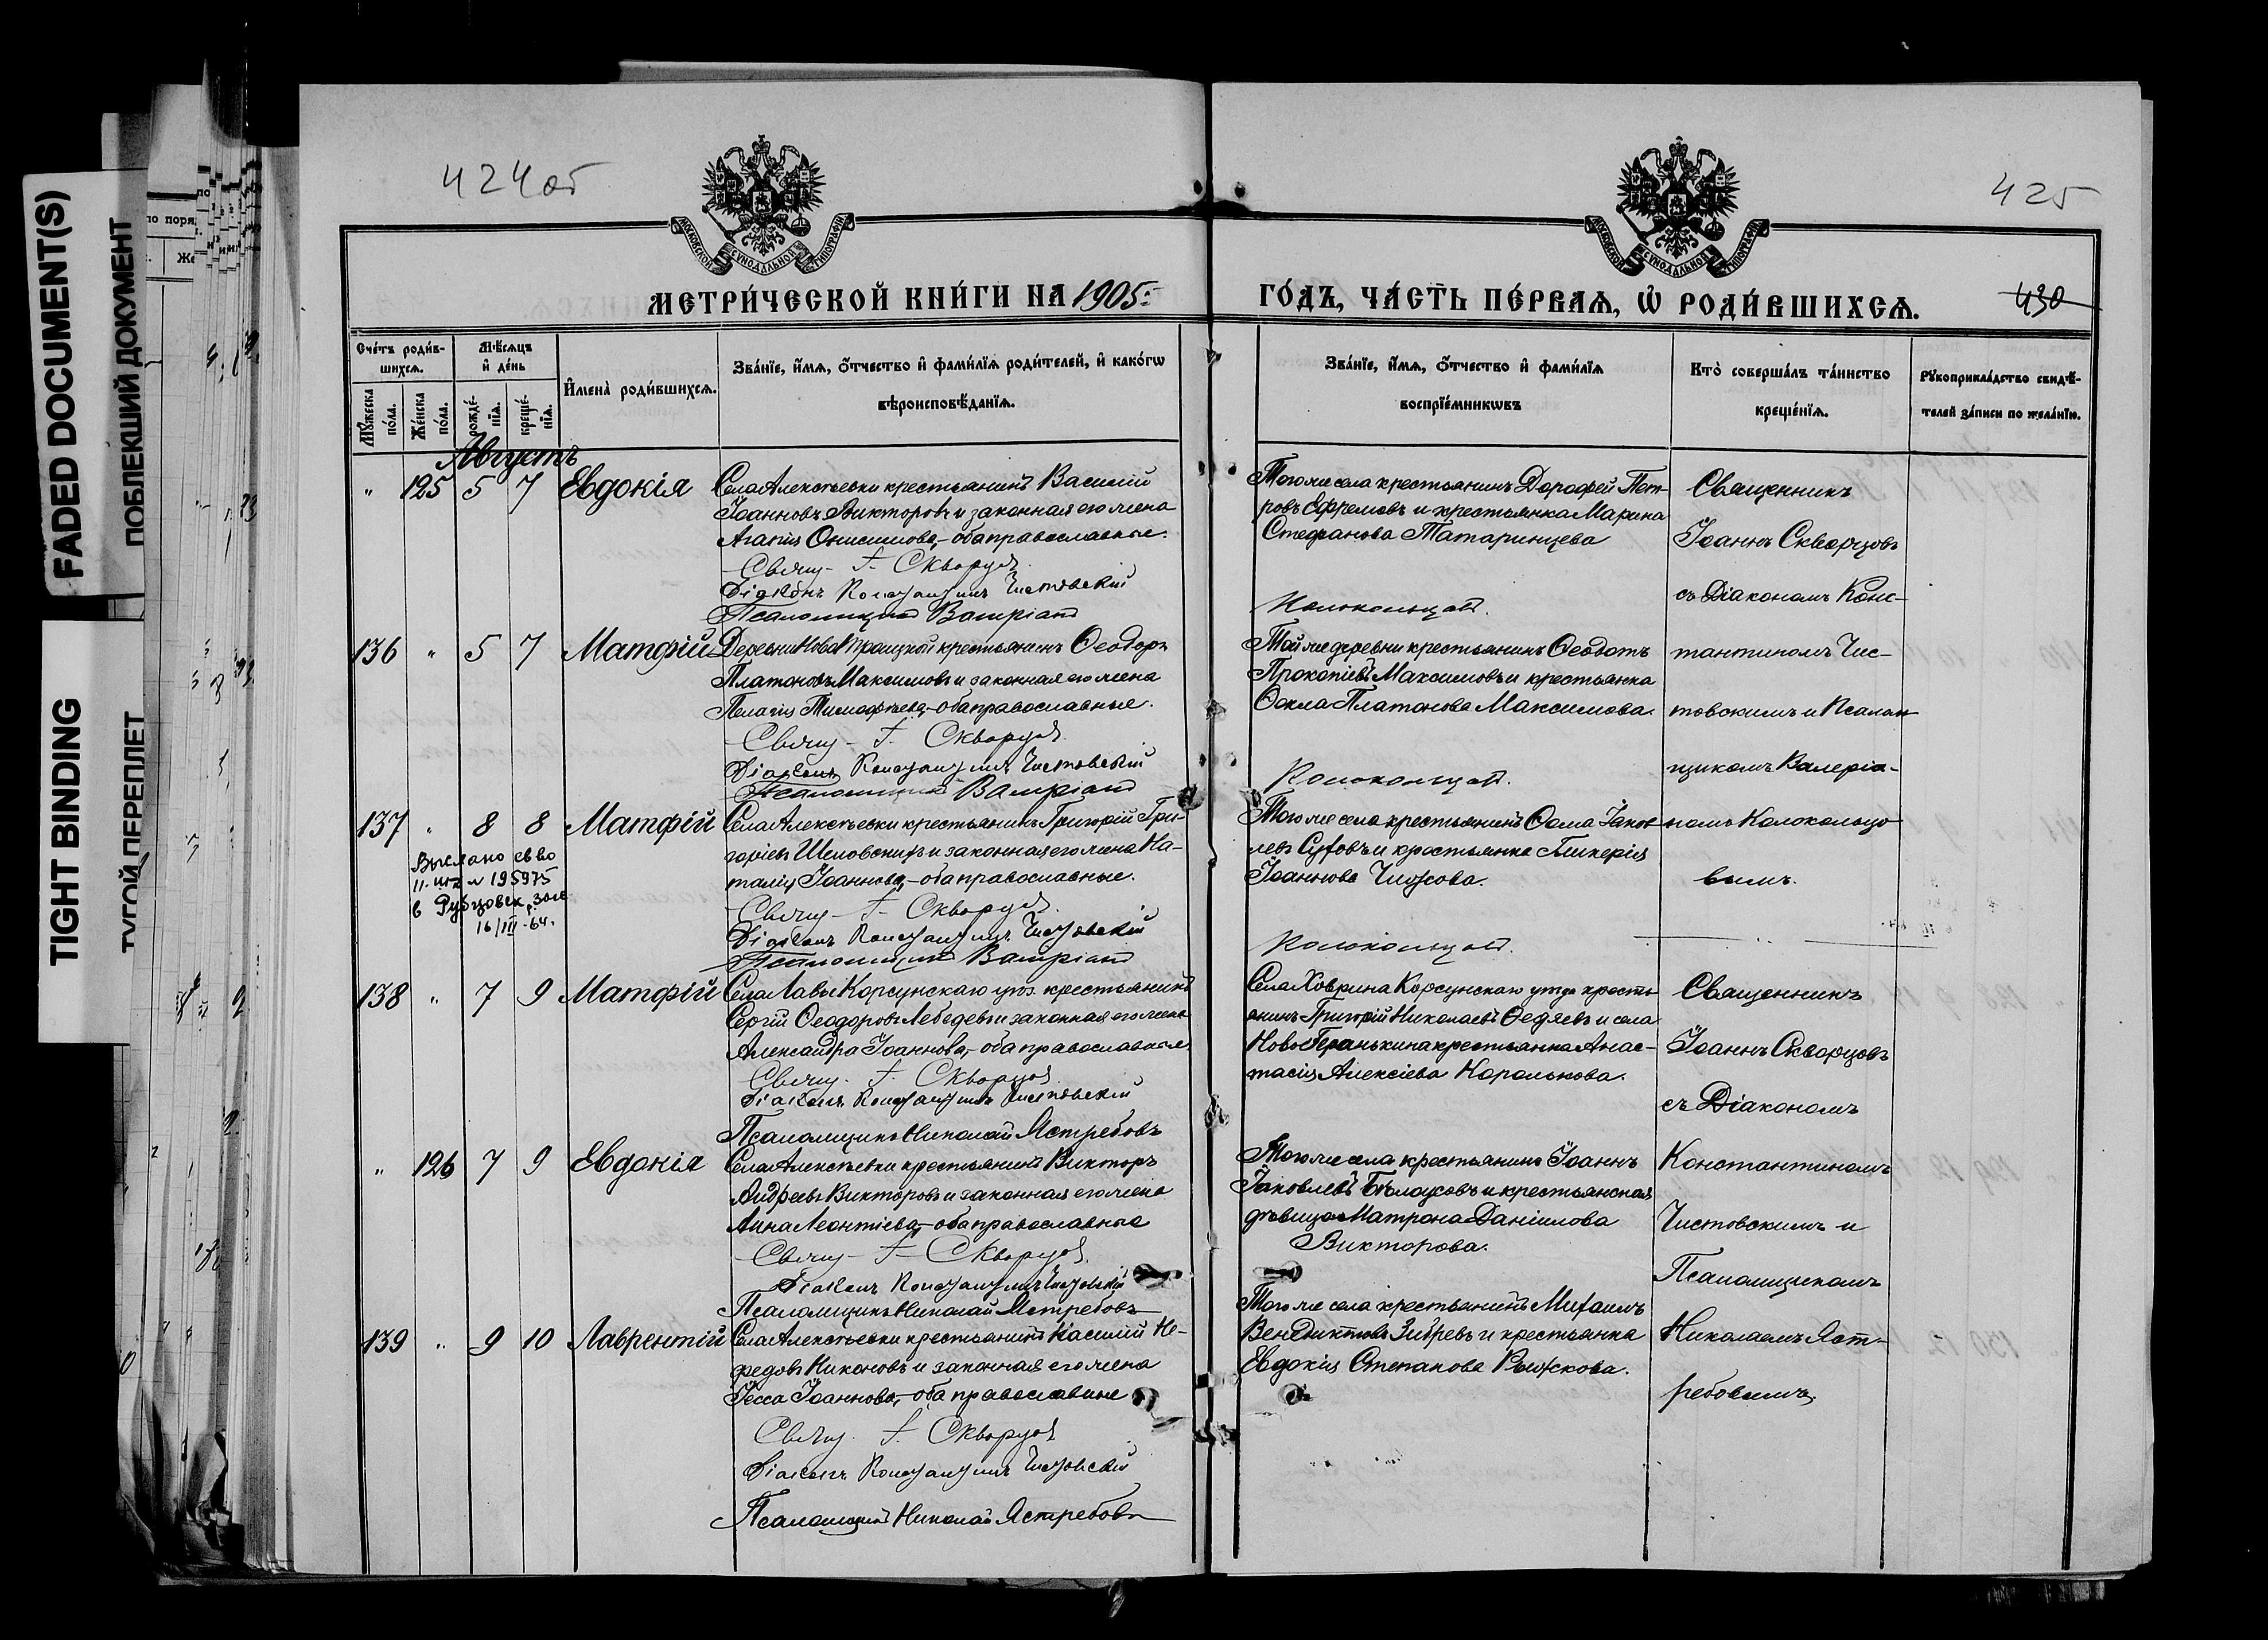 FADED DOCUMENT(S)
ПОБЛЕКШИЙ ДОКУМЕНТ
TIGHT BINDING
ТУГОЙ ПЕРЕПЛЕТ
424об
425
МОСКОВСКОЙ СѴНОДАЛЬНОЙ ТИПОГРАФІИ
МОСКОВСКОЙ СѴНОДАЛЬНОЙ ТИПОГРАФІИ
МЕТРИ́ЧЕСКОЙ КНИ́ГИ НА 1905:
ГО́ДЪ, ЧА́СТЬ ПЕ́РВАѦ, Ѡ҆ РОДИ́ВШИХСѦ.
430
Сче́тъ роди́в-
шихсѧ.
Мꙋ́жеска по́ла.
Же́нска по́ла.
Мѣ́сѧцъ
и҆ де́нь
рожде́-нїѧ.
креще́-нїѧ.
И҆мена̀ роди́вшихсѧ.
Зва́нїе, и҆́мѧ, ѻ҆́тчество и҆ фами́лїѧ роди́телей, и҆ како́гѡ
вѣроисповѣ́данїѧ.
Зва́нїе, и҆́мѧ, ѻ҆́тчество и҆ фами́лїѧ
воспрїе́мникѡвъ
Кто̀ соверша́лъ та́инство
креще́нїѧ.
Рꙋкоприкла́дство свидѣ́-
телей за́писи по жела́нїю.
Августъ
" 125 5 7 Евдокія
Села Алексѣевки крестьянинъ Василій
Іоанновъ Викторовъ и законная его жена
Агапія Онисимова,- оба православные.
Свящ. І. Скворцов
Діаконъ Константинъ Чистовскій
Псаломщикъ Валеріанъ
Того же села крестьянинъ Дорофей Пет-
ровъ Ефремовъ и крестьянка Марина
Стефанова Татаринцева
Колокольцовъ.
Священникъ
Іоаннъ Скворцовъ
съ Діакономъ Конс-
тантиномъ Чис-
товскимъ и Псалом
щикомъ Валеріа-
номъ Колокольцо
вымъ.
136 " 5 7 Матфій
Деревни Ново Троицкой крестьянинъ Ѳеодоръ
Платоновъ Максимовъ и законная его жена
Пелагія Тимофѣева,- оба православные.
Свящ. І. Скворцов.
Діаконъ Константинъ Чистовскій
Псаломщикъ Валеріанъ
Той же деревни крестьянинъ Ѳеодотъ
Прокопіевъ Максимовъ и крестьянка
Ѳекла Платонова Максимова.
Колокольцовъ.
137 " 8 8 Матфій
Выслано св во
II. ша № 195975
в Рубцовск. загс
16/III-64.
Села Алексѣевки крестьянинъ Григорій Гри-
горіевъ и законная его жена На-
талія Іоаннова,- оба православные.
Свящ. І. Скворцов.
Діаконъ Константинъ Чистовскій
Псаломщикъ Валеріанъ
Того же села крестьянинъ Ѳома Іаков
левъ Суховъ и крестьянка Гликерія
Іоаннова Чижова.
Колокольцовъ.
138 " 7 9 Матфій
Села Лавы Корсунскаго уѣз. крестьянинъ
Сергій Ѳеодоровъ Лебедевъ и законная его жена
Александра Іоаннова,- оба православные
Свящ. І. Скворцов
Діаконъ Константинъ Чистовскій
Псаломщикъ Николай Ястребовъ
Села Ховрина Корсунскаго уѣзда кресть
янинъ Григорій Николаевъ Ѳедяевъ и села
Ново Геранькина крестьянка Анас-
тасія Алексіева Королькова.
Священникъ
Іоаннъ Скворцовъ
съ Діакономъ
Константиномъ
Чистовскимъ и
Псаломщикомъ
Николаемъ Яст-
ребовымъ
" 126 7 9 Евдокія
Села Алексѣевки крестьянинъ Викторъ
Андреевъ Викторовъ и законная его жена
Анна Леонтіева,- оба православные
Свящ. І. Скворцов.
Діаконъ Константинъ Чистовскій
Псаломщикъ Николай Ястребовъ
Того же села крестьянинъ Іоаннъ
Іаковлевъ Бѣлаусовъ и крестьянская
дѣвица Матрона Даніилова
Викторова.
139 " 9 10 Лаврентій
Села Алексѣевки крестьянинъ Василій Не-
федовъ Никоновъ и законная его жена
Іоаннова,- оба православные
Свящ. І. Скворцов
Діаконъ Константинъ Чистовскій
Псаломщикъ Николай Ястребовъ
Того же села крестьянинъ Михаилъ
Венедиктовъ Зибревъ и крестьянка
Евдокія Степанова Рыжкова.